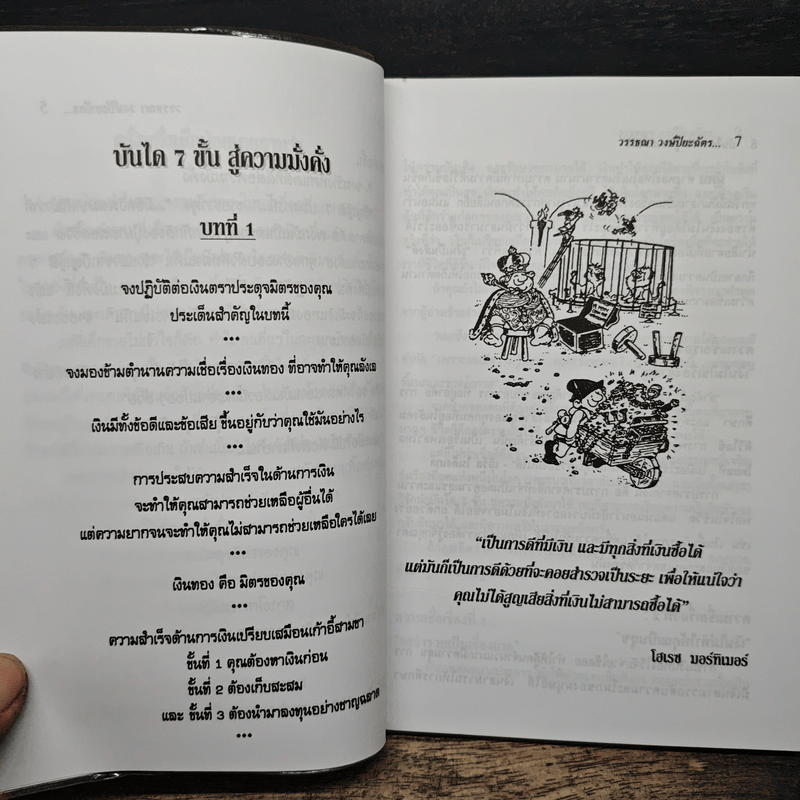 บันได 7 ขั้น สู่ความมั่งคั่ง
บทที่ 1
จงปฏิบัติต่อเงินตราประดุจมิตรของคุณ
ประเด็นสำคัญในบทนี้
•••
จงมองข้ามตำนานความเชื่อเรื่องเงินทอง ที่อาจทำให้คุณลังเล
•••
เงินมีทั้งข้อดีและข้อเสีย ขึ้นอยู่กับว่าคุณใช้มันอย่างไร
•••
การประสบความสำเร็จในด้านการเงิน
จะทำให้คุณสามารถช่วยเหลือผู้อื่นได้
แต่ความยากจนจะทำให้คุณไม่สามารถช่วยเหลือใครได้เลย
•••
เงินทอง คือ มิตรของคุณ
•••
ความสำเร็จด้านการเงินเปรียบเสมือนเก้าอี้สามขา
ขั้นที่ 1 คุณต้องหาเงินก่อน
ขั้นที่ 2 ต้องเก็บสะสม
และ ขั้นที่ 3 ต้องนำมาลงทุนอย่างชาญฉลาด
•••
วรรธณา วงษ์ปิยะฉัตร... 7
“เป็นการดีที่มีเงิน และมีทุกสิ่งที่เงินซื้อได้
แต่มันก็เป็นการดีด้วยที่จะคอยสำรวจเป็นระยะ เพื่อให้แน่ใจว่า
คุณไม่ได้สูญเสียสิ่งที่เงินไม่สามารถซื้อได้”
โฮเรซ มอร์ทิเมอร์